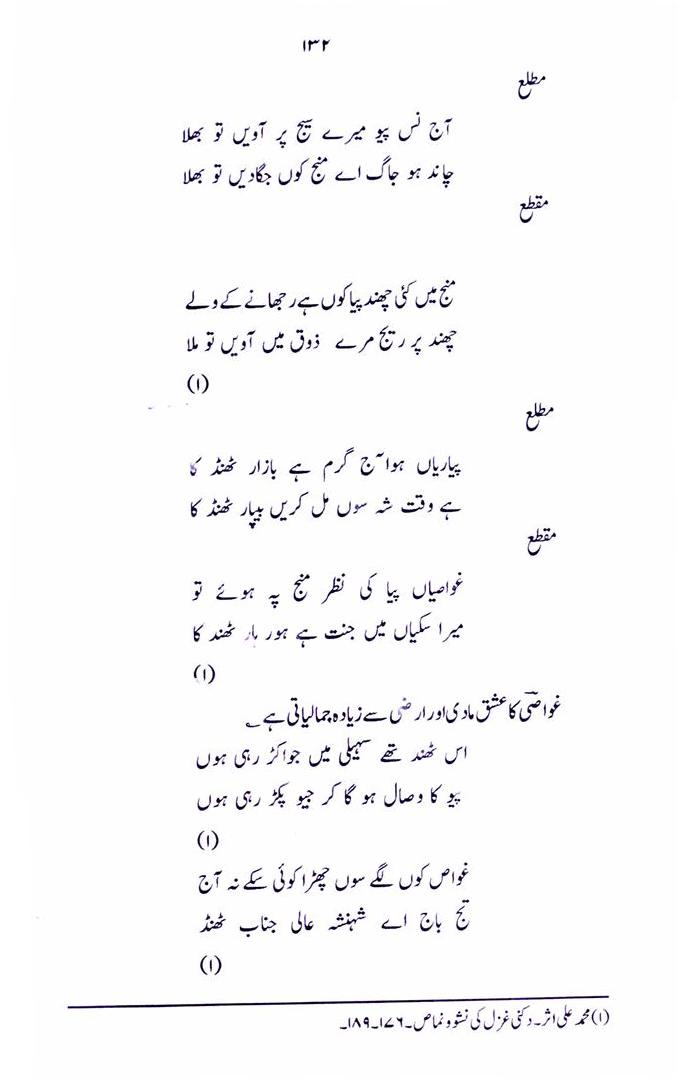 ۱۳۲
مطلع
آج نس پیو میرے سیج پر آویں تو بھلا
چاند ہو جاگ اے منج کوں جگادیں تو بھلا
مقطع
منج میں کئی چھند پیا کوں ہے رجھانے کے ولے
چھند پر ریج مرے ذوق میں آویں تو ملا
(۱)
مطلع
پیاریاں ہوا آج گرم ہے بازار ٹھنڈ کا
ہے وقت شہ سوں مل کریں بیپار ٹھنڈ کا
مقطع
غواصیاں پیا کی نظر منج پہ ہوئے تو
میرا سکیاں میں جنت ہے ہور ہار ٹھند کا
(۱)
غواصیؔ کا عشق مادی اور ارضی سے زیادہ جمالیاتی ہے۔
اس ٹھند تھے سہیلی میں جواکڑ رہی ہوں
پیو کا وصال ہو گا کر جیو پکڑ رہی ہوں
(۱)
غواص کوں لگے سوں چھڑا کوئی سکے نہ آج
تج باج اے شہنشہ عالی جناب ٹھنڈ
(۱)
(۱) محمد علی اثر۔ دکنی غزل کی نشوونما ص۔۱۷۶۔۱۸۹۔